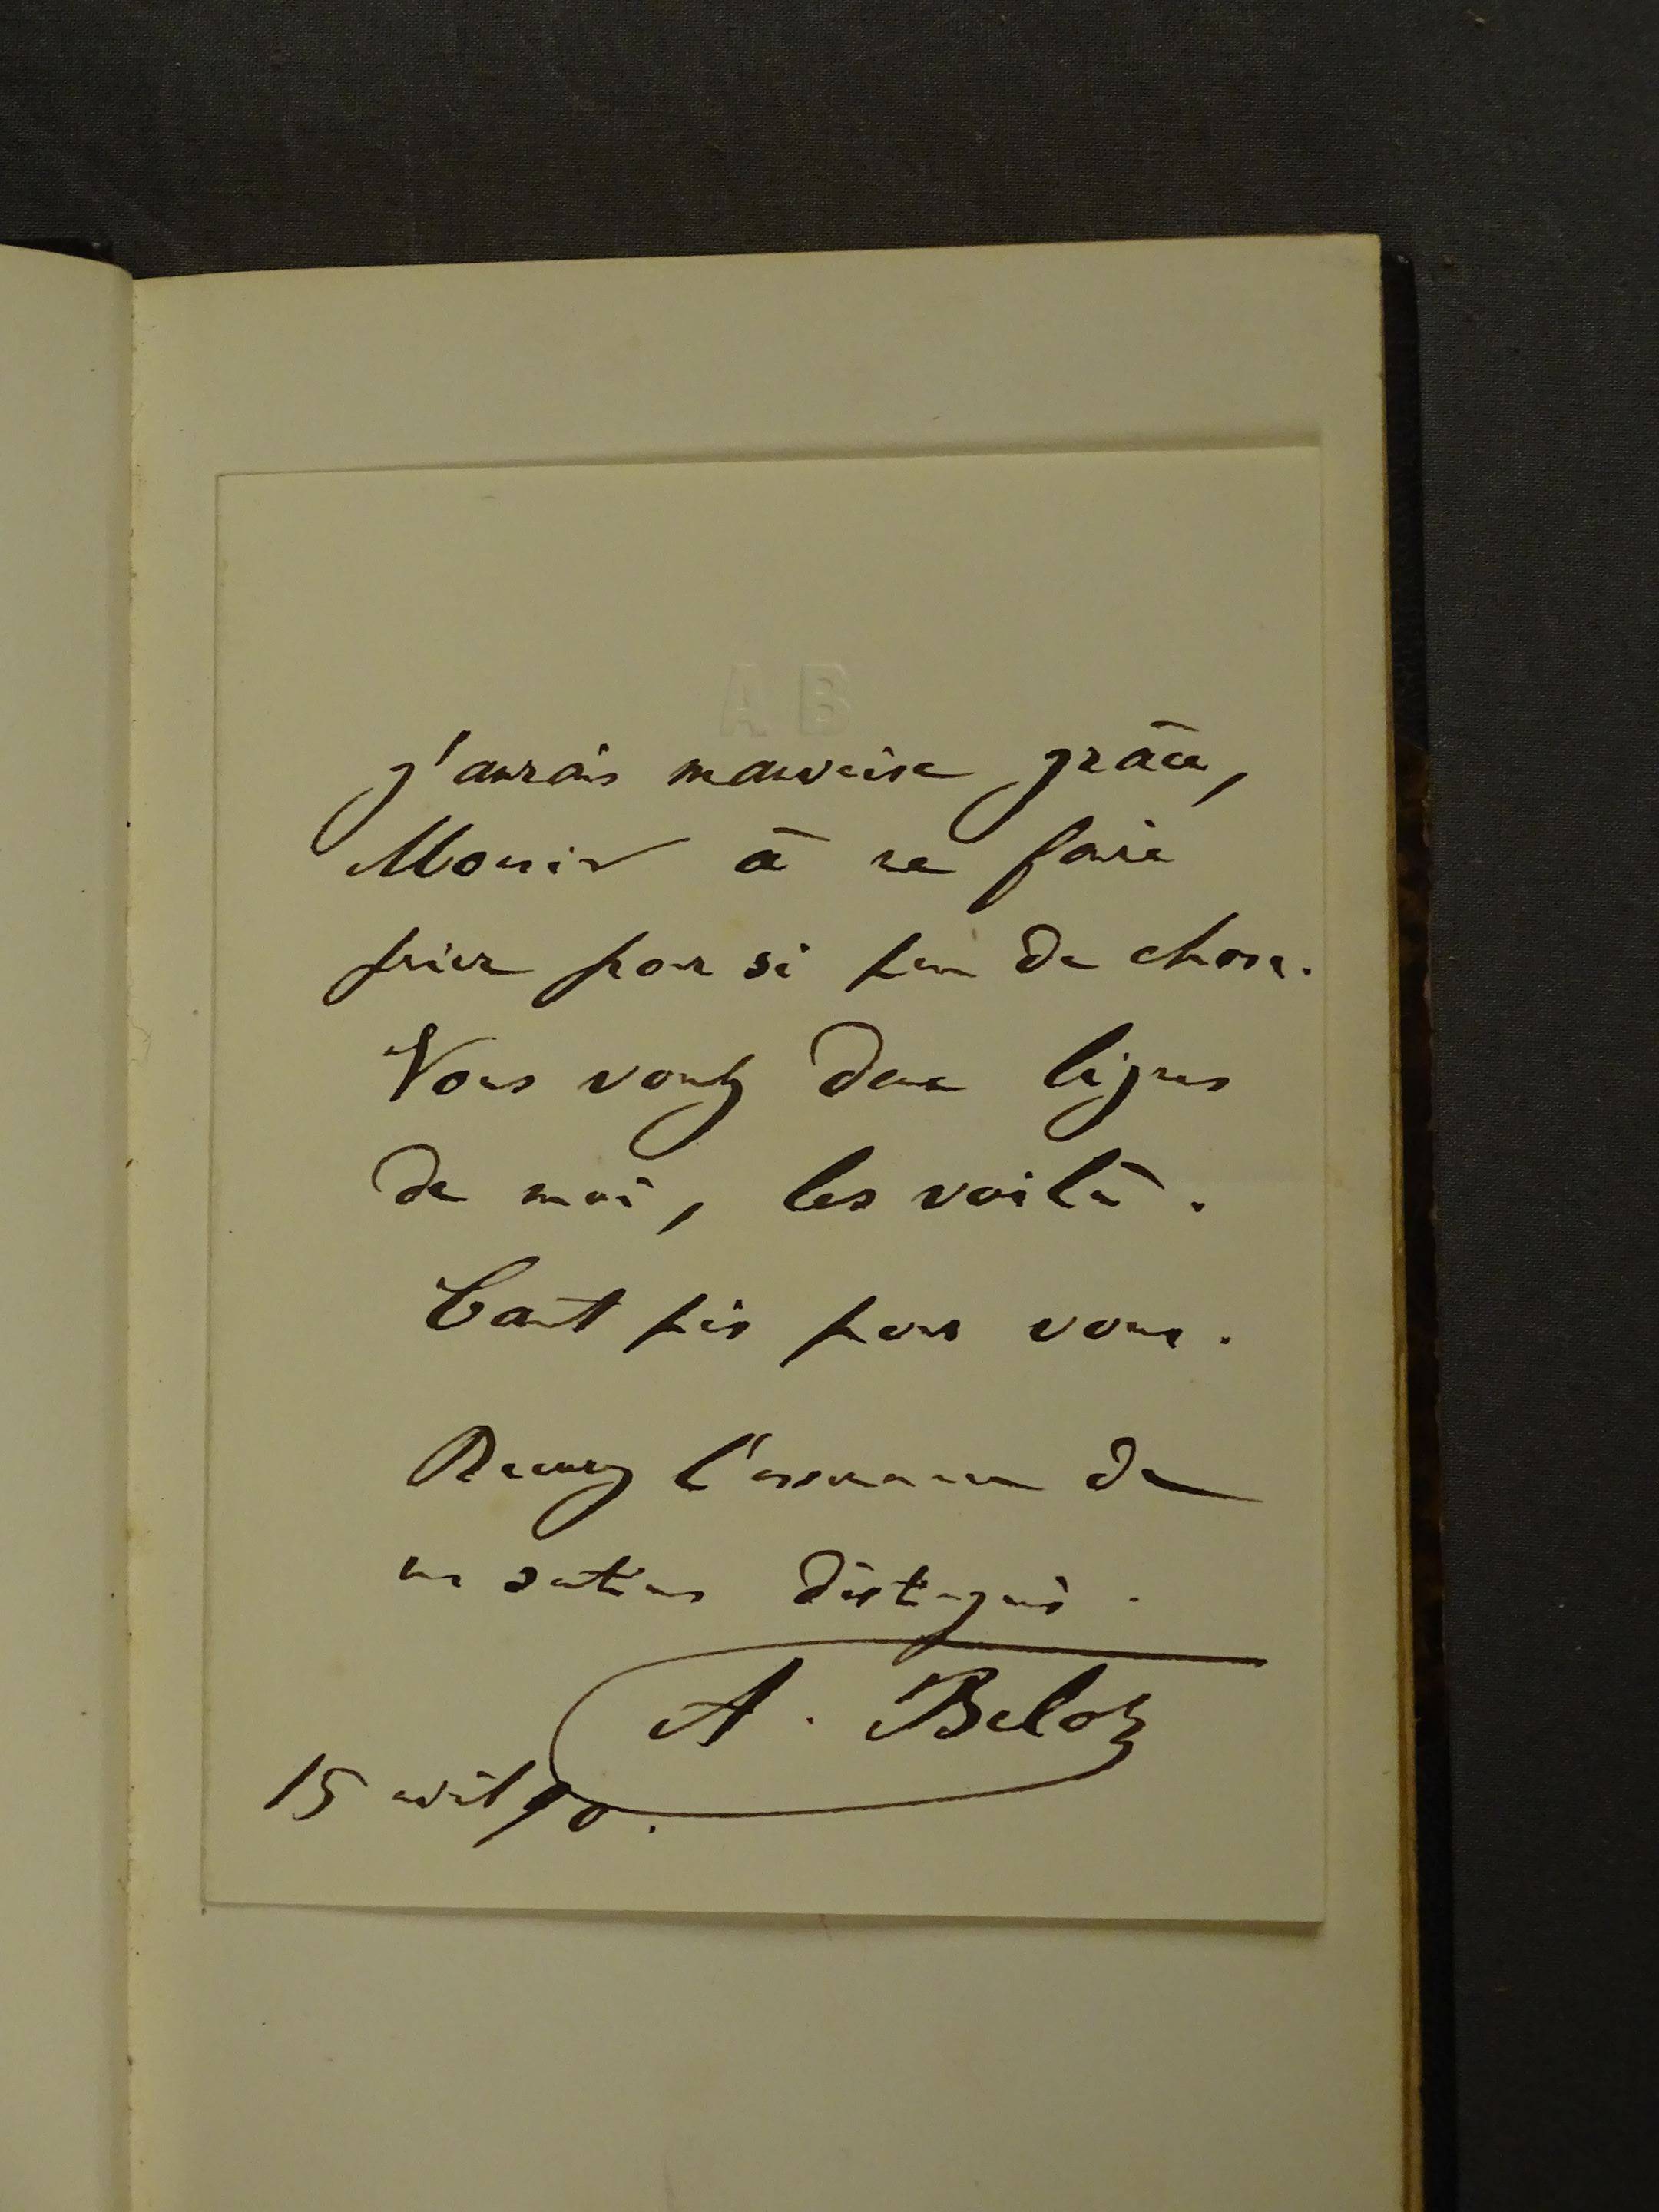 A B
J'aurais mauvaise grâce,
Monsieur à me faire
prier pour si peu de chose.
Vous voulez deux lignes
de moi, les voilà.
Tant pis pour vous.
Recevez l'assurance de
mes sentiments distingués.
A. Belot
15 avril 90.